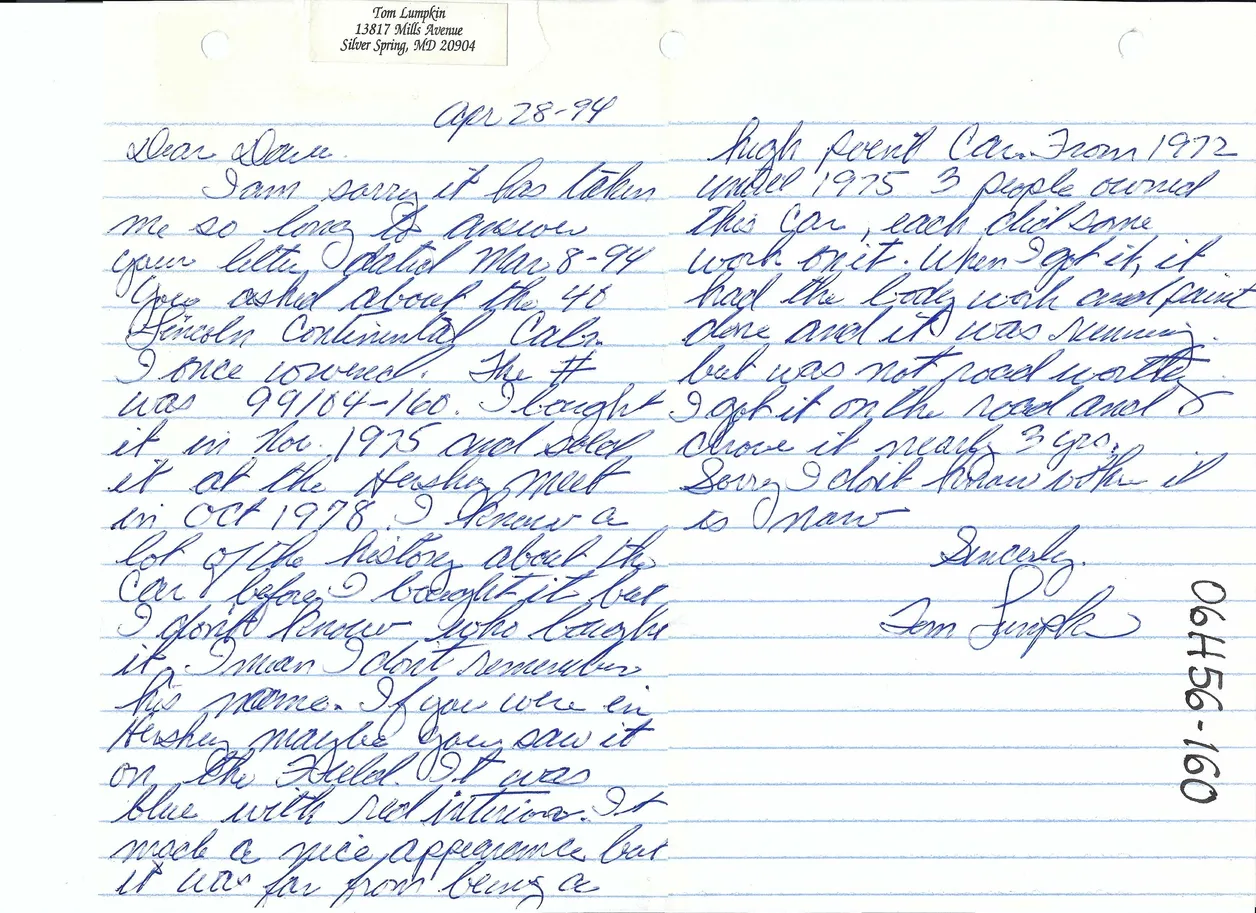 Tom Lumpkin
13817 Mills Avenue
Silver Spring, MD 20904
Apr 28-94
Dear Dave.
I am sorry it has taken
me so long to answer
your letter, dated Mar 8-94
You asked about the 40
Lincoln Continental Cabr.
I once owned. The #
was 99104-160. I bought
it in Nov. 1975 and sold
it at the Hershey meet
in Oct 1978. I know a
lot of the history about the
car before I bought it but
I don't know who bought
it, I mean I don't remember
his name. If you were in
Hershey maybe you saw it
on the Field. It was
blue with red interior. It
made a nice appearance but
it was far from being a
high point car. From 1972
until 1975 3 people owned
this car, each did some
work on it. When I got it, it
had the body work and paint
done and it was running.
but was not road worthy
I got it on the road and
drove it nearly 3 yrs.
Sorry I don't know where it
is now
Sincerly.
Tom Lumpkin
06H56-160